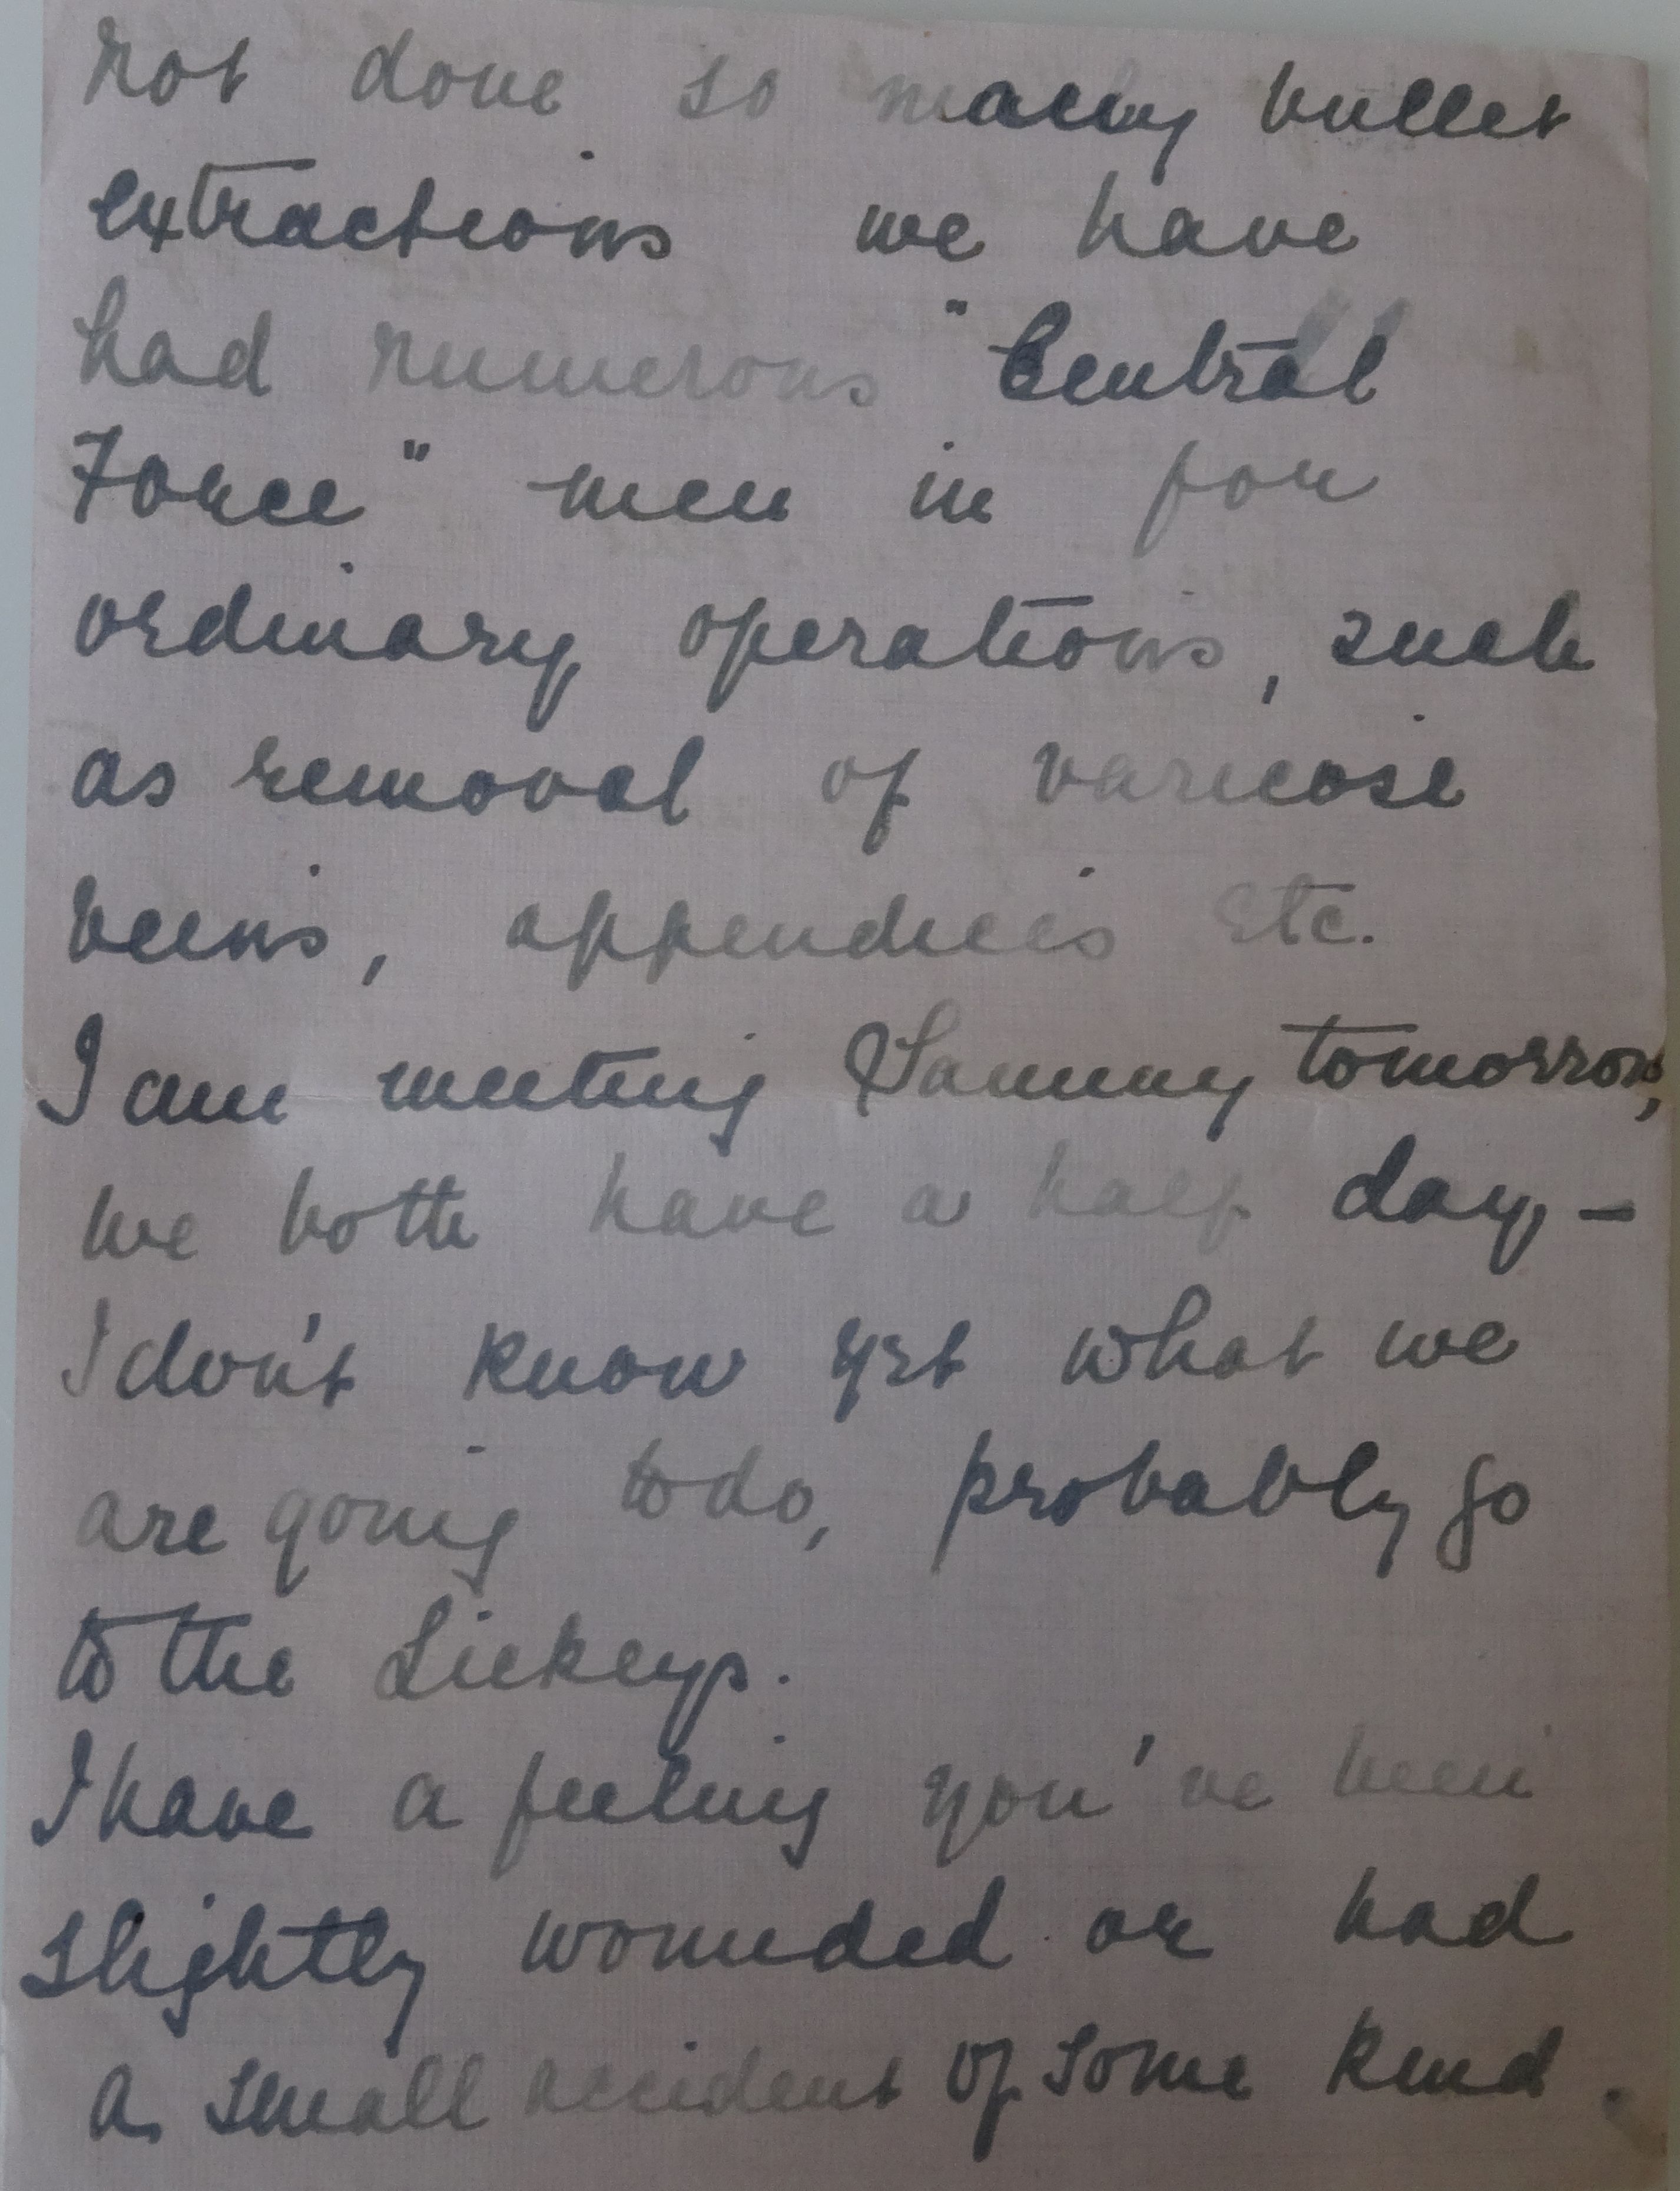 not done so many bullet
extractions we have
had numerous "Central
Force" men in for
ordinary operations, such
as removal of varicose
veins, appendices etc.
I am meeting Sammy tomorrow,
we both have a half day -
I don't know yet what we
are going to do, probably go
to the Lickeys.
I have a feeling you've been
slightly wounded or had
a small accident of some kind.